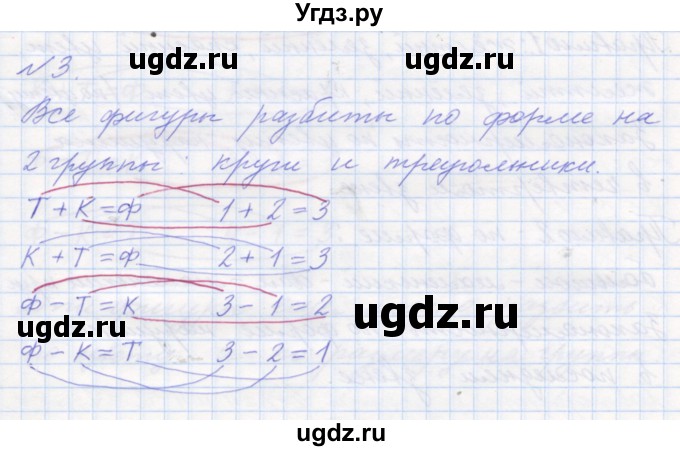 Угдз.ру
ugdz.ru ugdz.ru
№3.
Все фигуры разбиты по форме на
2 группы: круги и треугольники.
Т + К = Ф 1 + 2 = 3
К + Т = Ф 2 + 1 = 3
Ф - Т = К 3 - 1 = 2
ugdz.ru ugdz.ru
Ф - К = Т 3 - 2 = 1
ugdz.ru